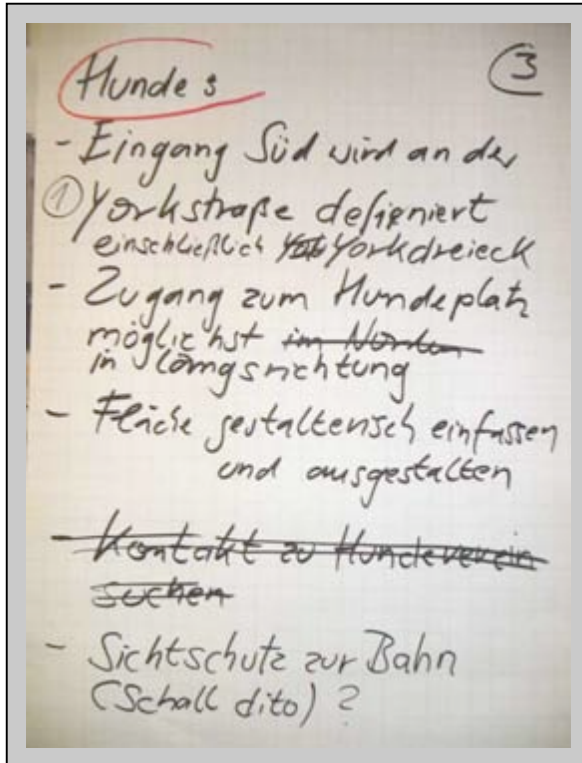 Hunde :
3
- Eingang Süd wird an der
① Yorkstraße definiert
einschließlich Yorkdreieck
- Zugang zum Hundeplatz
möglichst im Norden
in Längsrichtung
- Fläche gestalterisch einfassen
und ausgestalten
- Kontakt zu Hundeverein
suchen
- Sichtschutz zur Bahn
(Schall dito) ?